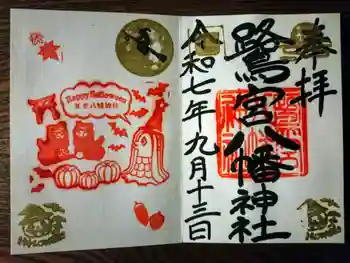 奉拝
鷺宮八幡神社
令和七年九月十三日
Happy Halloween
鷺宮八幡神社